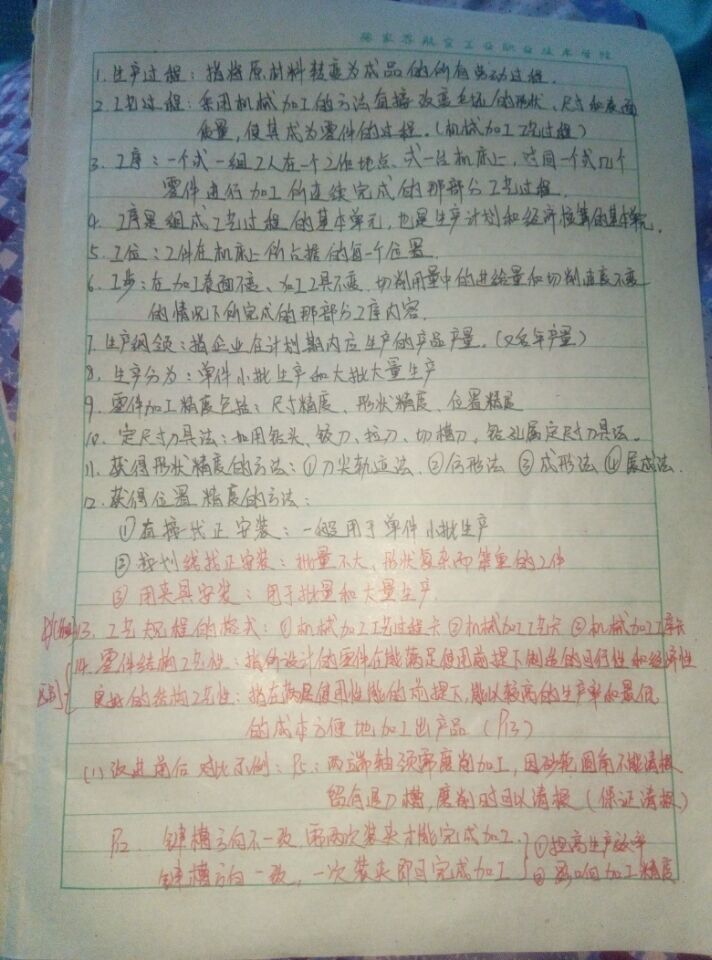 张家界航空工业职业技术学院
1.生产过程：指将原材料转变为成品的所有劳动过程.
2.工艺过程：采用机械加工的方法直接改变毛坯的形状、尺寸和表面
质量,使其成为零件的过程.(机械加工工艺过程)
3.工序：一个或一组工人在一个工作地点、或一台机床上,对同一个或几个
零件进行加工所连续完成的那部分工艺过程.
4.工序是组成工艺过程的基本单元,也是生产计划和经济核算的基本单元.
5.工位：工件在机床上所占据的每一个位置.
6.工步：在加工表面不变、加工工具不变、切削用量中的进给量和切削速度不变
的情况下所完成的那部分工序内容.
7.生产纲领：指企业在计划期内应生产的产品产量.(又名年产量)
8.生产分为：单件小批生产和大批大量生产
9.零件加工精度包括：尺寸精度、形状精度、位置精度
10.定尺寸刀具法：如用钻头、铰刀、拉刀、切槽刀,钻孔属定尺寸刀具法.
11.获得形状精度的方法：①刀尖轨迹法.②仿形法 ③成形法 ④展成法.
12.获得位置精度的方法：
①直接找正安装：一般用于单件小批生产
②按划线找正安装：批量不大,形状复杂而笨重的工件
③用夹具安装：用于批量和大量生产.
13.工艺规程的格式：①机械加工工艺过程卡②机械加工工艺卡③机械加工工序卡
区别 14.零件结构工艺性：指所设计的零件在能满足使用前提下制造的可行性和经济性
良好的结构工艺性：指在满足使用性能的前提下,能以较高的生产率和最低
的成本方便地加工出产品(P13)
(1)改进前后对比示例：P5：两端轴颈需磨削加工,因砂轮圆角不能清根
留有退刀槽,磨削时可以清根(保证清根)
P12. 键槽方向不一致,需两次装夹才能完成加工. ①提高生产效率
键槽方向一致,一次装夹即可完成加工 ②影响加工精度.